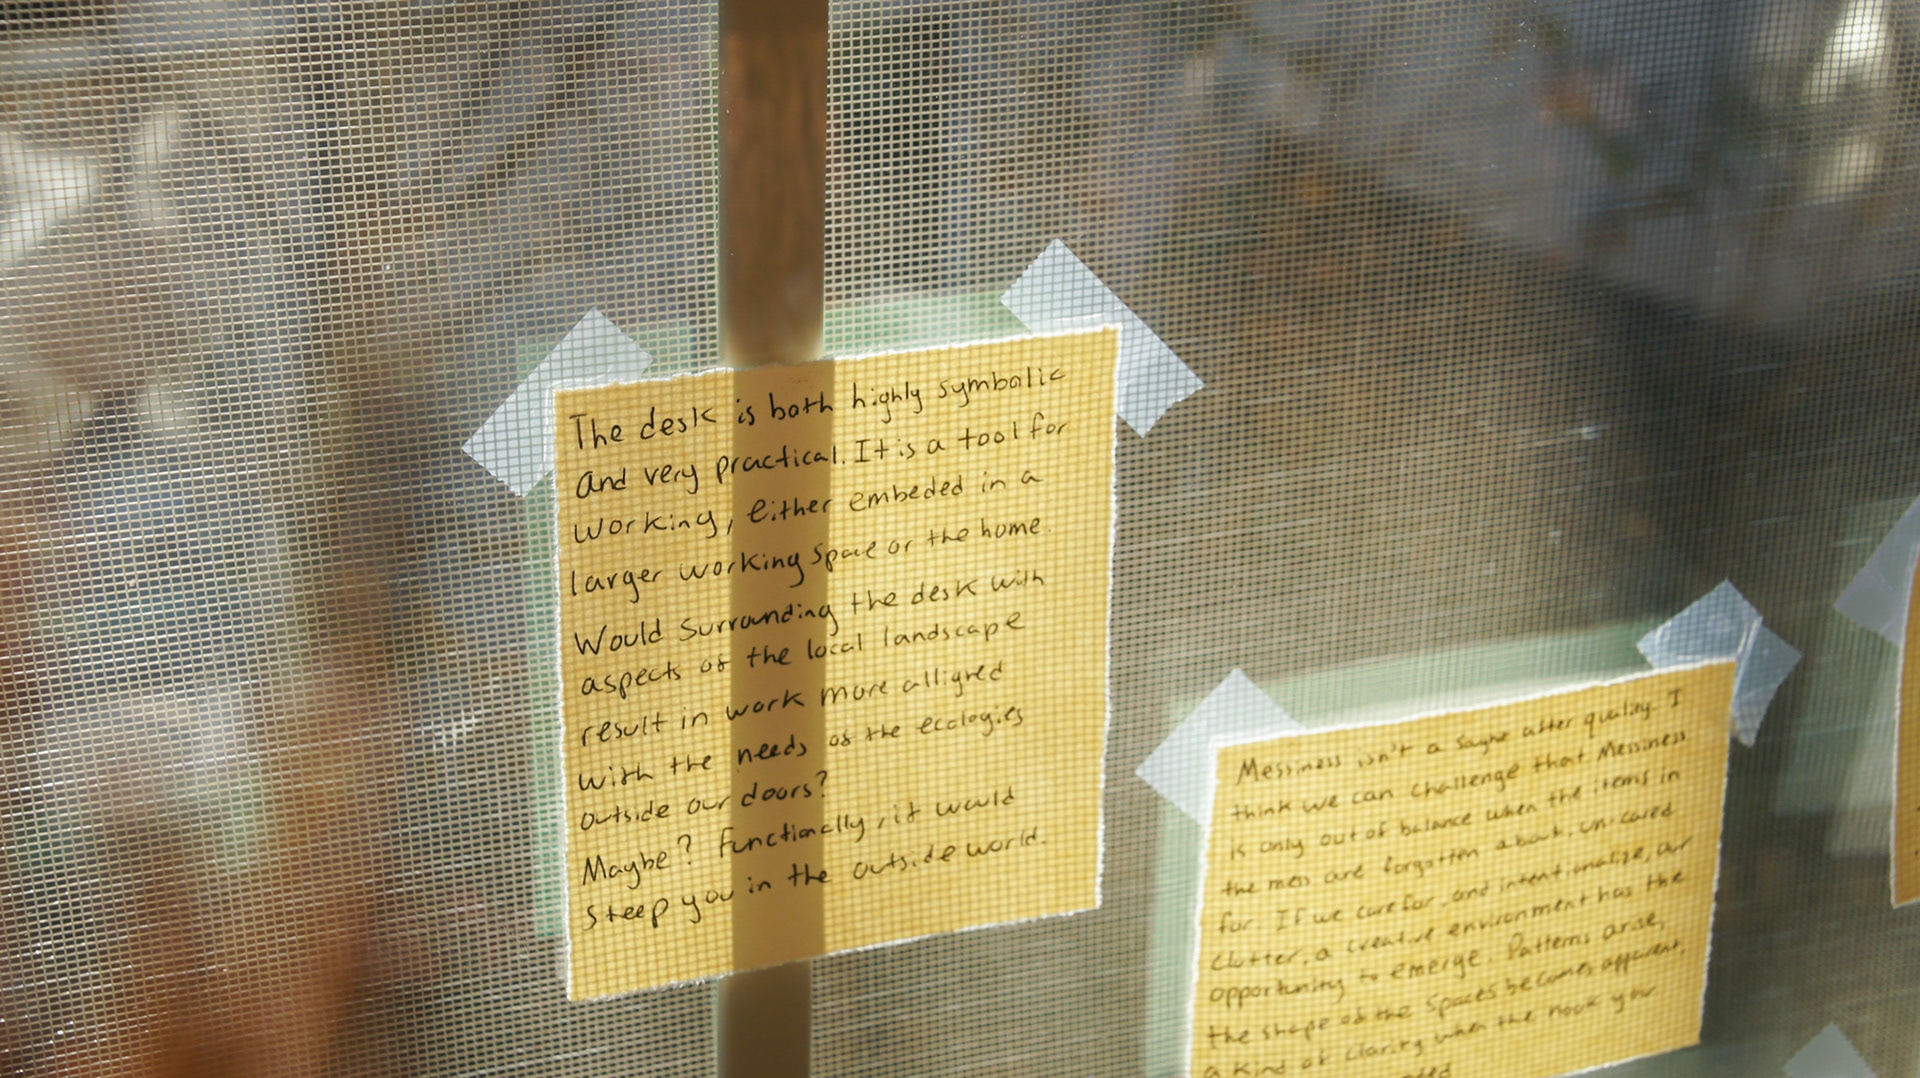 The desk is both highly symbolic
and very practical. It is a tool for
working, either embeded in a
larger working space or the home.
Would surrounding the desk with
aspects of the local landscape
result in work more alligned
with the needs of the ecologies
outside our doors?
Maybe? Functionally, it would
steep you in the outside world.
Messiness isn't a sought after quality. I
think we can challenge that. Messiness
is only out of balance when the items in
the mess are forgotten about, un-cared
for. If we care for, and intentionalize, our
clutter, a creative environment has the
opportunity to emerge. Patterns arise,
the shape of the spaces becomes apparent,
a kind of clarity when the nook you